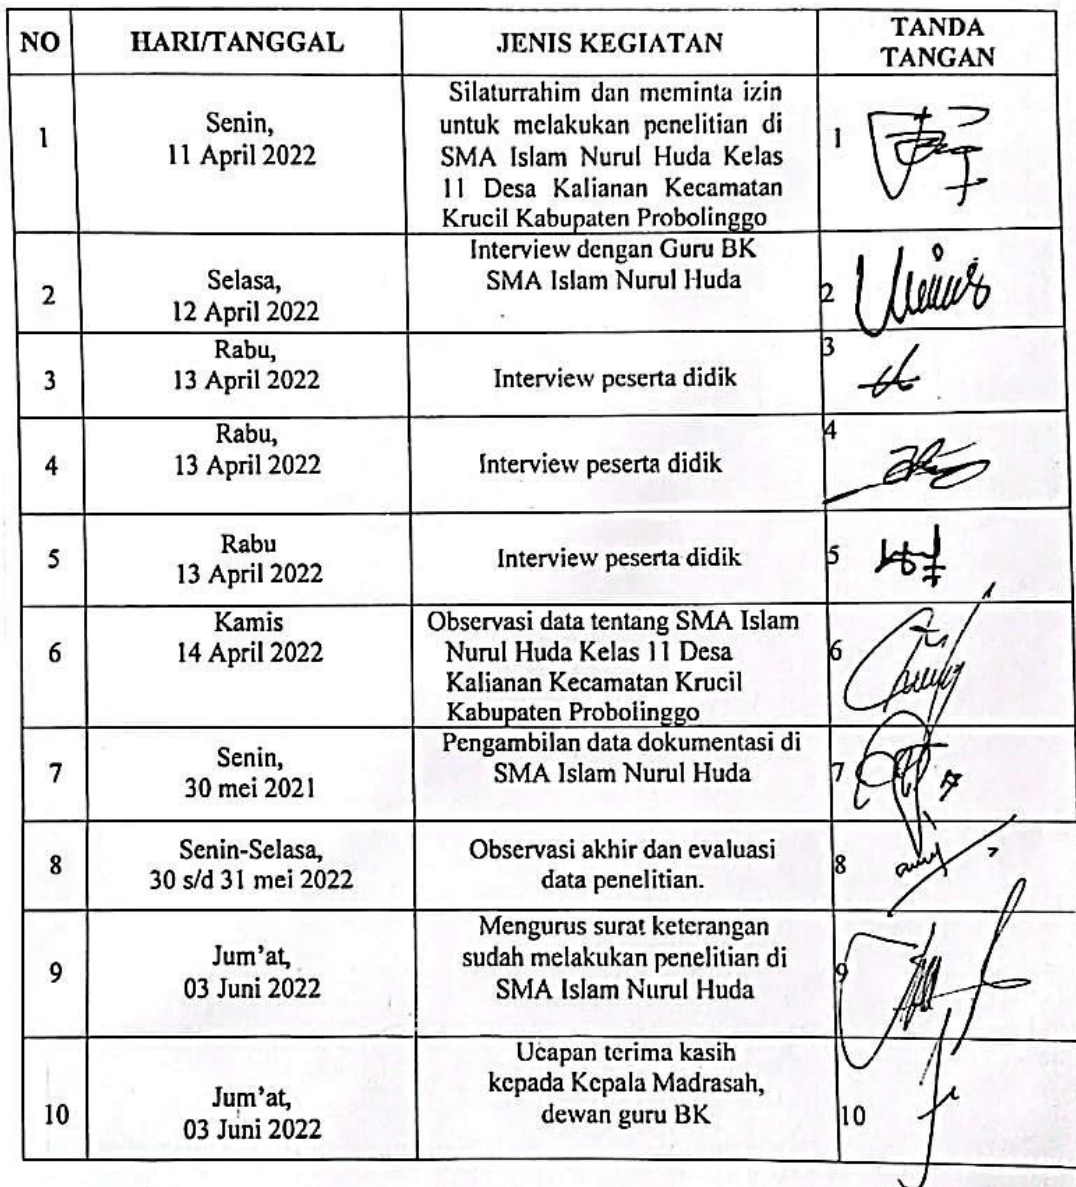 NO HARI/TANGGAL JENIS KEGIATAN TANDA TANGAN
1 Senin, 11 April 2022
Silaturrahim dan meminta izin
untuk melakukan penelitian di
SMA Islam Nurul Huda Kelas
11 Desa Kalianan Kecamatan
Krucil Kabupaten Probolinggo
1
2 Selasa, 12 April 2022
Interview dengan Guru BK
SMA Islam Nurul Huda
2
3 Rabu, 13 April 2022
Interview peserta didik
3
4 Rabu, 13 April 2022
Interview peserta didik
4
5 Rabu 13 April 2022
Interview peserta didik
5
6 Kamis 14 April 2022
Observasi data tentang SMA Islam
Nurul Huda Kelas 11 Desa
Kalianan Kecamatan Krucil
Kabupaten Probolinggo
6
7 Senin, 30 mei 2021
Pengambilan data dokumentasi di
SMA Islam Nurul Huda
7
8 Senin-Selasa, 30 s/d 31 mei 2022
Observasi akhir dan evaluasi
data penelitian.
8
9 Jum'at, 03 Juni 2022
Mengurus surat keterangan
sudah melakukan penelitian di
SMA Islam Nurul Huda
9
10 Jum'at, 03 Juni 2022
Ucapan terima kasih
kepada Kepala Madrasah,
dewan guru BK
10